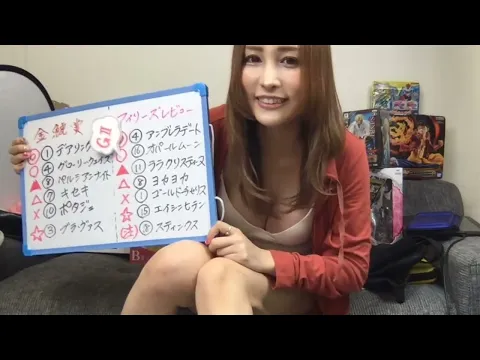 金鯱賞
GⅡ
◎ ① デアリングタクト
○ ④ グローリーヴェイズ
▲ ⑧ ペルシアンナイト
△ ⑦ キセキ
X ⑩ ポタジェ
☆ ③ ブラヴァス
フィリーズレビュー
◎ ④ アンブレラデート
○ ⑭ オパールムーン
▲ ⑪ ララクリスティーヌ
△ ⑧ ヨカヨカ
X ① ゴールドチャリス
☆ ⑮ エイシンヒテン
スティンクス